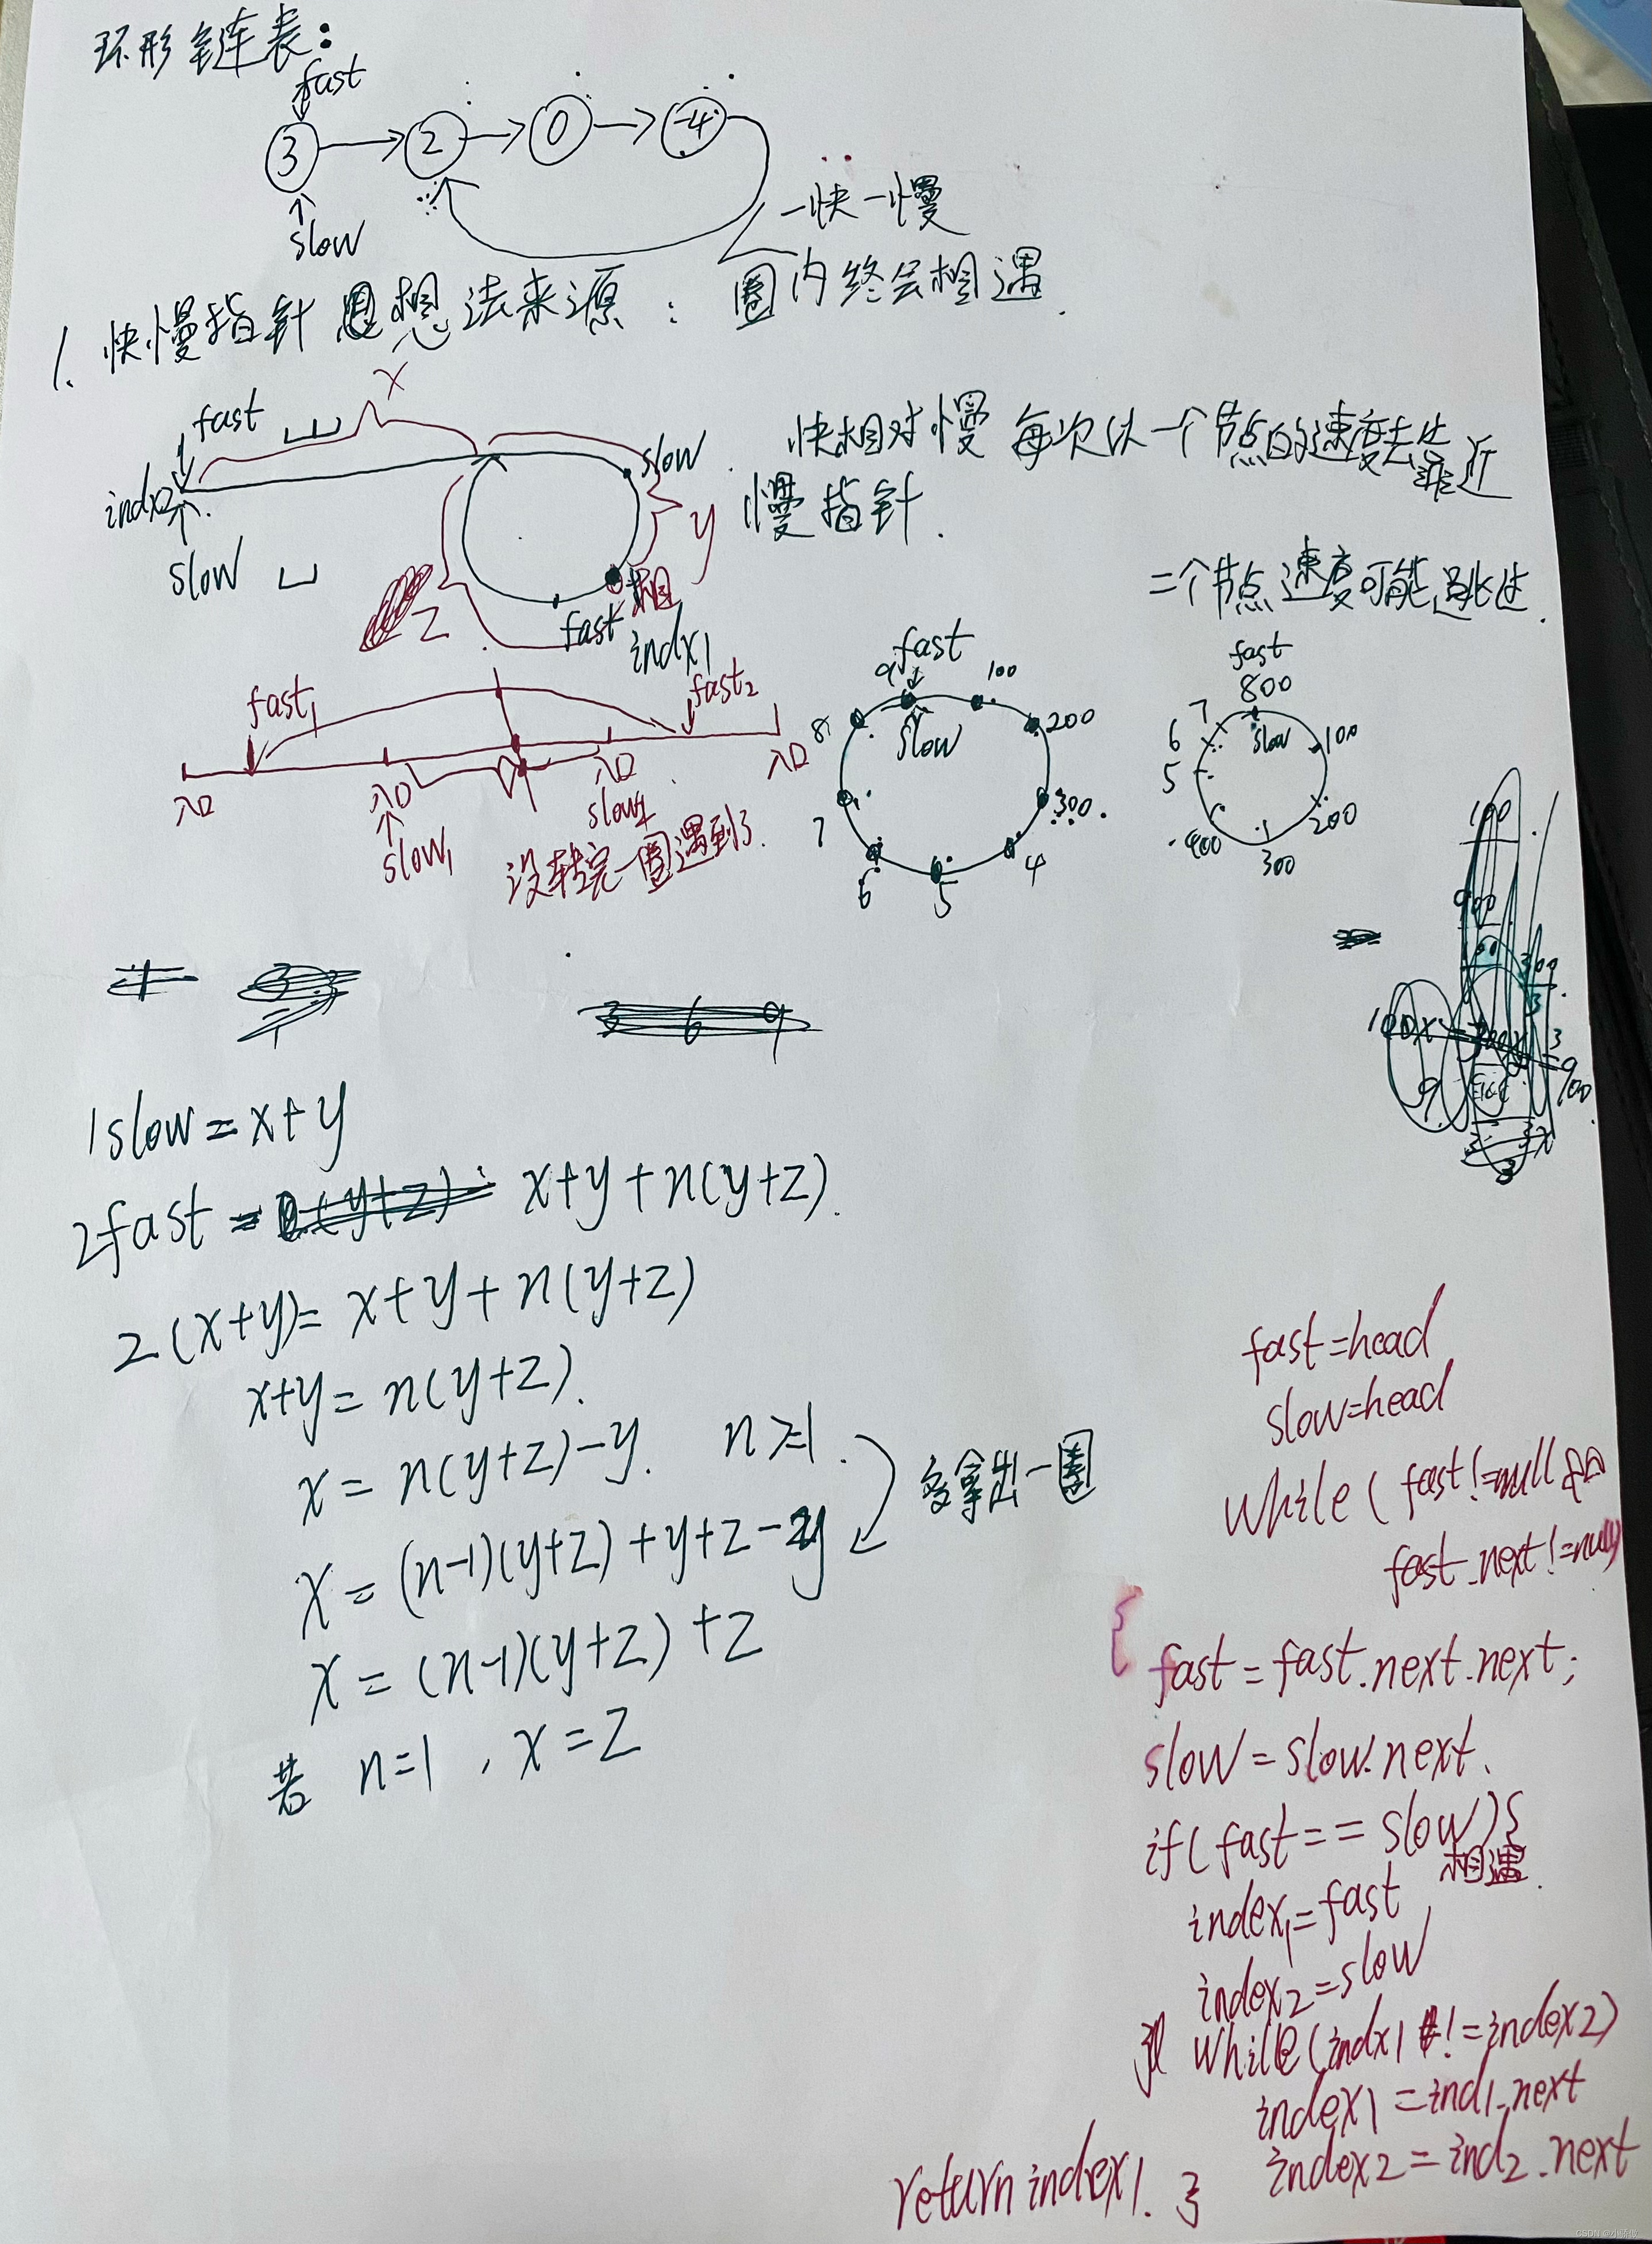 环形链表：
fast
3 → 2 → 0 → -4
slow
一快一慢
1. 快慢指针思想法来源： 圈内终会相遇.
x
fast
slow
indx2
slow
y
z
fast 相
indx1
快相对慢 每次以一个节点的速度去靠近
慢指针.
二个节点速度可能跳过.
fast1
fast2
入口 入口 入口 入口
slow1
slow2
没转完一圈遇到了.
fast
9 100
8 slow 200
7 300
6 5 4
fast
800
7 slow 100
6
5
400 300 200
1slow = x+y
2fast = x+y+n(y+z).
2(x+y)= x+y+n(y+z)
x+y= n(y+z).
x = n(y+z)-y. n≥1.
多拿出一圈
x = (n-1)(y+z)+y+z-y
x = (n-1)(y+z)+z
若 n=1, x=z
fast=head
slow=head
while( fast!=null &&
fast.next!=null)
{
fast=fast.next.next;
slow=slow.next.
if(fast==slow){
相遇.
index1=fast
index2=slow
while(indx1 !=index2)
index1=ind1.next
index2=ind2.next
return index1. }
CSDN